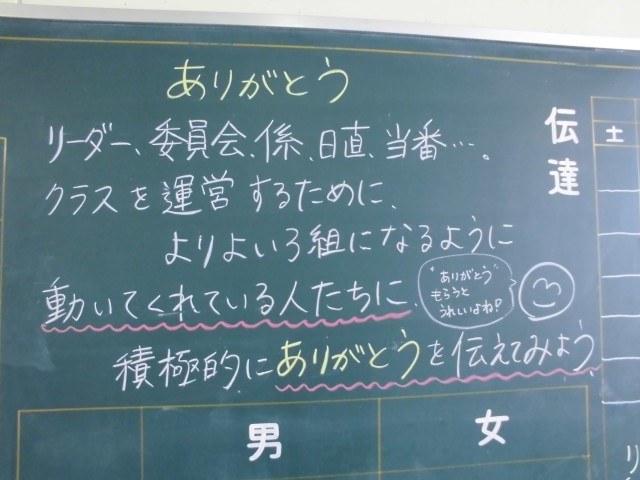 ありがとう
リーダー、委員会、係、日直、当番…。
クラスを運営するために、
よりよい3組になるように
動いてくれている人たちに、
"ありがとう"
もらうと
うれしいよね?
積極的にありがとうを伝えてみよう。
伝達
土
男
女
り